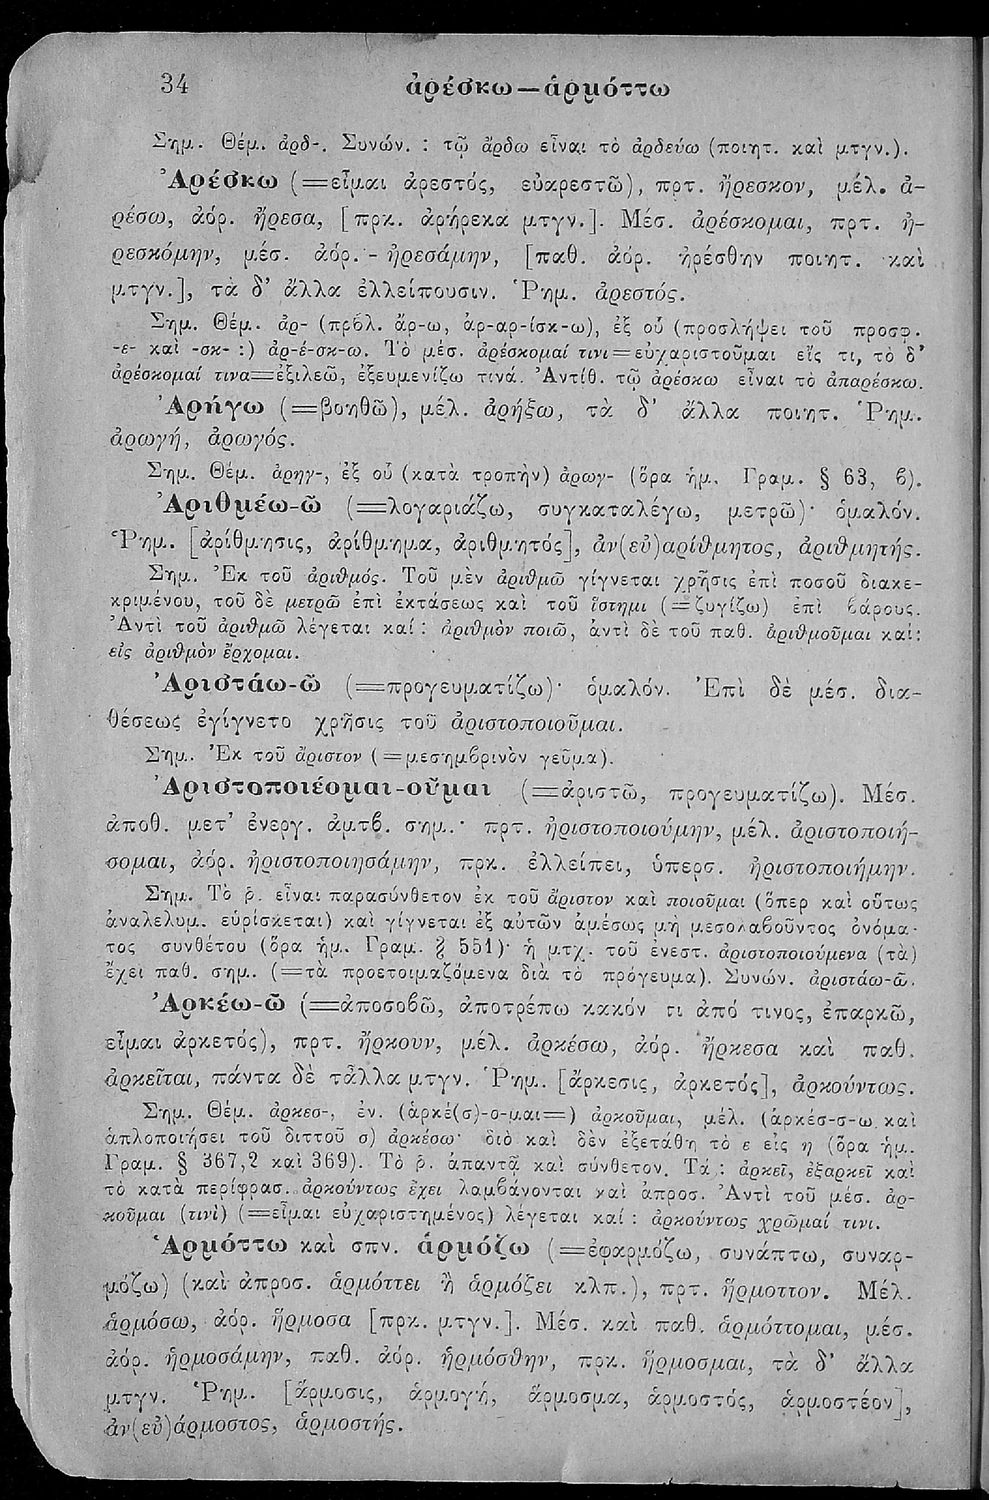 34 ἀρέσκω—ἁρμόττω
Σημ. Θέμ. ἀρδ-. Συνών. : τῷ ἄρδω εἶναι τὸ ἀρδεύω (ποιητ. καὶ μτγν.).
Ἀρέσκω (=εἶμαι ἀρεστός, εὐαρεστῶ), πρτ. ἤρεσκον, μέλ. ἀ-
ρέσω, ἀόρ. ἤρεσα, [πρκ. ἀρήρεκα μτγν.]. Μέσ. ἀρέσκομαι, πρτ. ἠ-
ρεσκόμην, μέσ. ἀόρ. - ἠρεσάμην, [παθ. ἀόρ. ἠρέσθην ποιητ. καὶ
μτγν.], τὰ δ' ἄλλα ἐλλείπουσιν. Ῥημ. ἀρεστός.
Σημ. Θέμ. ἀρ- (πρβλ. ἄρ-ω, ἀρ-αρ-ίσκ-ω), ἐξ οὗ (προσλήψει τοῦ προσφ.
-ε- καὶ -σκ- :) ἀρ-έ-σκ-ω. Τὸ μέσ. ἀρέσκομαί τινι=εὐχαριστοῦμαι εἴς τι, τὸ δ'
ἀρέσκομαί τινα=ἐξιλεῶ, ἐξευμενίζω τινά. Ἀντίθ. τῷ ἀρέσκω εἶναι τὸ ἀπαρέσκω.
Ἀρήγω (=βοηθῶ), μέλ. ἀρήξω, τὰ δ' ἄλλα ποιητ. Ῥημ.
ἀρωγή, ἀρωγός.
Σημ. Θέμ. ἀρηγ-, ἐξ οὗ (κατὰ τροπὴν) ἀρωγ- (ὅρα ἡμ. Γραμ. § 63, β).
Ἀριθμέω-ῶ (=λογαριάζω, συγκαταλέγω, μετρῶ)· ὁμαλόν.
Ῥημ. [ἀρίθμησις, ἀρίθμημα, ἀριθμητός], ἀν(εὐ)αρίθμητος, ἀριθμητής.
Σημ. Ἐκ τοῦ ἀριθμός. Τοῦ μὲν ἀριθμῶ γίγνεται χρῆσις ἐπὶ ποσοῦ διακε-
κριμένου, τοῦ δὲ μετρῶ ἐπὶ ἐκτάσεως καὶ τοῦ ἵστημι (=ζυγίζω) ἐπὶ βάρους.
Ἀντὶ τοῦ ἀριθμῶ λέγεται καί : ἀριθμὸν ποιῶ, ἀντὶ δὲ τοῦ παθ. ἀριθμοῦμαι καί:
εἰς ἀριθμὸν ἔρχομαι.
Ἀριστάω-ῶ (=προγευματίζω)· ὁμαλόν. Ἐπὶ δὲ μέσ. δια-
θέσεως ἐγίγνετο χρῆσις τοῦ ἀριστοποιοῦμαι.
Σημ. Ἐκ τοῦ ἄριστον (=μεσημβρινὸν γεῦμα).
Ἀριστοποιέομαι-οῦμαι (=ἀριστῶ, προγευματίζω). Μέσ.
ἀποθ. μετ' ἐνεργ. ἀμτβ. σημ.· πρτ. ἠριστοποιούμην, μέλ. ἀριστοποιή-
σομαι, ἀόρ. ἠριστοποιησάμην, πρκ. ἐλλείπει, ὑπερσ. ἠριστοποιήμην.
Σημ. Τὸ ῥ. εἶναι παρασύνθετον ἐκ τοῦ ἄριστον καὶ ποιοῦμαι (ὅπερ καὶ οὕτως
ἀναλελυμ. εὑρίσκεται) καὶ γίγνεται ἐξ αὐτῶν ἀμέσως μὴ μεσολαβοῦντος ὀνόμα-
τος συνθέτου (ὅρα ἡμ. Γραμ. § 551)· ἡ μτχ. τοῦ ἐνεστ. ἀριστοποιούμενα (τὰ)
ἔχει παθ. σημ. (=τὰ προετοιμαζόμενα διὰ τὸ πρόγευμα). Συνών. ἀριστάω-ῶ.
Ἀρκέω-ῶ (=ἀποσοβῶ, ἀποτρέπω κακόν τι ἀπό τινος, ἐπαρκῶ,
εἶμαι ἀρκετός), πρτ. ἤρκουν, μέλ. ἀρκέσω, ἀόρ. ἤρκεσα καὶ παθ.
ἀρκεῖται, πάντα δὲ τἆλλα μτγν. Ῥημ. [ἄρκεσις, ἀρκετός], ἀρκούντως.
Σημ. Θέμ. ἀρκεσ-, ἐν. (ἀρκέ(σ)-ο-μαι=) ἀρκοῦμαι, μέλ. (ἀρκέσ-σ-ω καὶ
ἁπλοποιήσει τοῦ διττοῦ σ) ἀρκέσω· διὸ καὶ δὲν ἐξετάθη τὸ ε εἰς η (ὅρα ἡμ.
Γραμ. § 367,2 καὶ 369). Τὸ ῥ. ἀπαντᾷ καὶ σύνθετον. Τά : ἀρκεῖ, ἐξαρκεῖ καὶ
τὸ κατὰ περίφρασ. ἀρκούντως ἔχει λαμβάνονται καὶ ἀπροσ. Ἀντὶ τοῦ μέσ. ἀρ-
κοῦμαι (τινὶ) (=εἶμαι εὐχαριστημένος) λέγεται καί : ἀρκούντως χρῶμαί τινι.
Ἁρμόττω καὶ σπν. ἁρμόζω (=ἐφαρμόζω, συνάπτω, συναρ-
μόζω) (καὶ ἀπροσ. ἁρμόττει ἢ ἁρμόζει κλπ.), πρτ. ἥρμοττον. Μέλ.
ἁρμόσω, ἀόρ. ἥρμοσα [πρκ. μτγν.]. Μέσ. καὶ παθ. ἁρμόττομαι, μέσ.
ἀόρ. ἡρμοσάμην, παθ. ἀόρ. ἡρμόσθην, πρκ. ἥρμοσμαι, τὰ δ' ἄλλα
μτγν. Ῥημ. [ἅρμοσις, ἁρμογή, ἅρμοσμα, ἁρμοστός, ἁρμοστέον],
ἀν(εὐ)άρμοστος, ἁρμοστής.